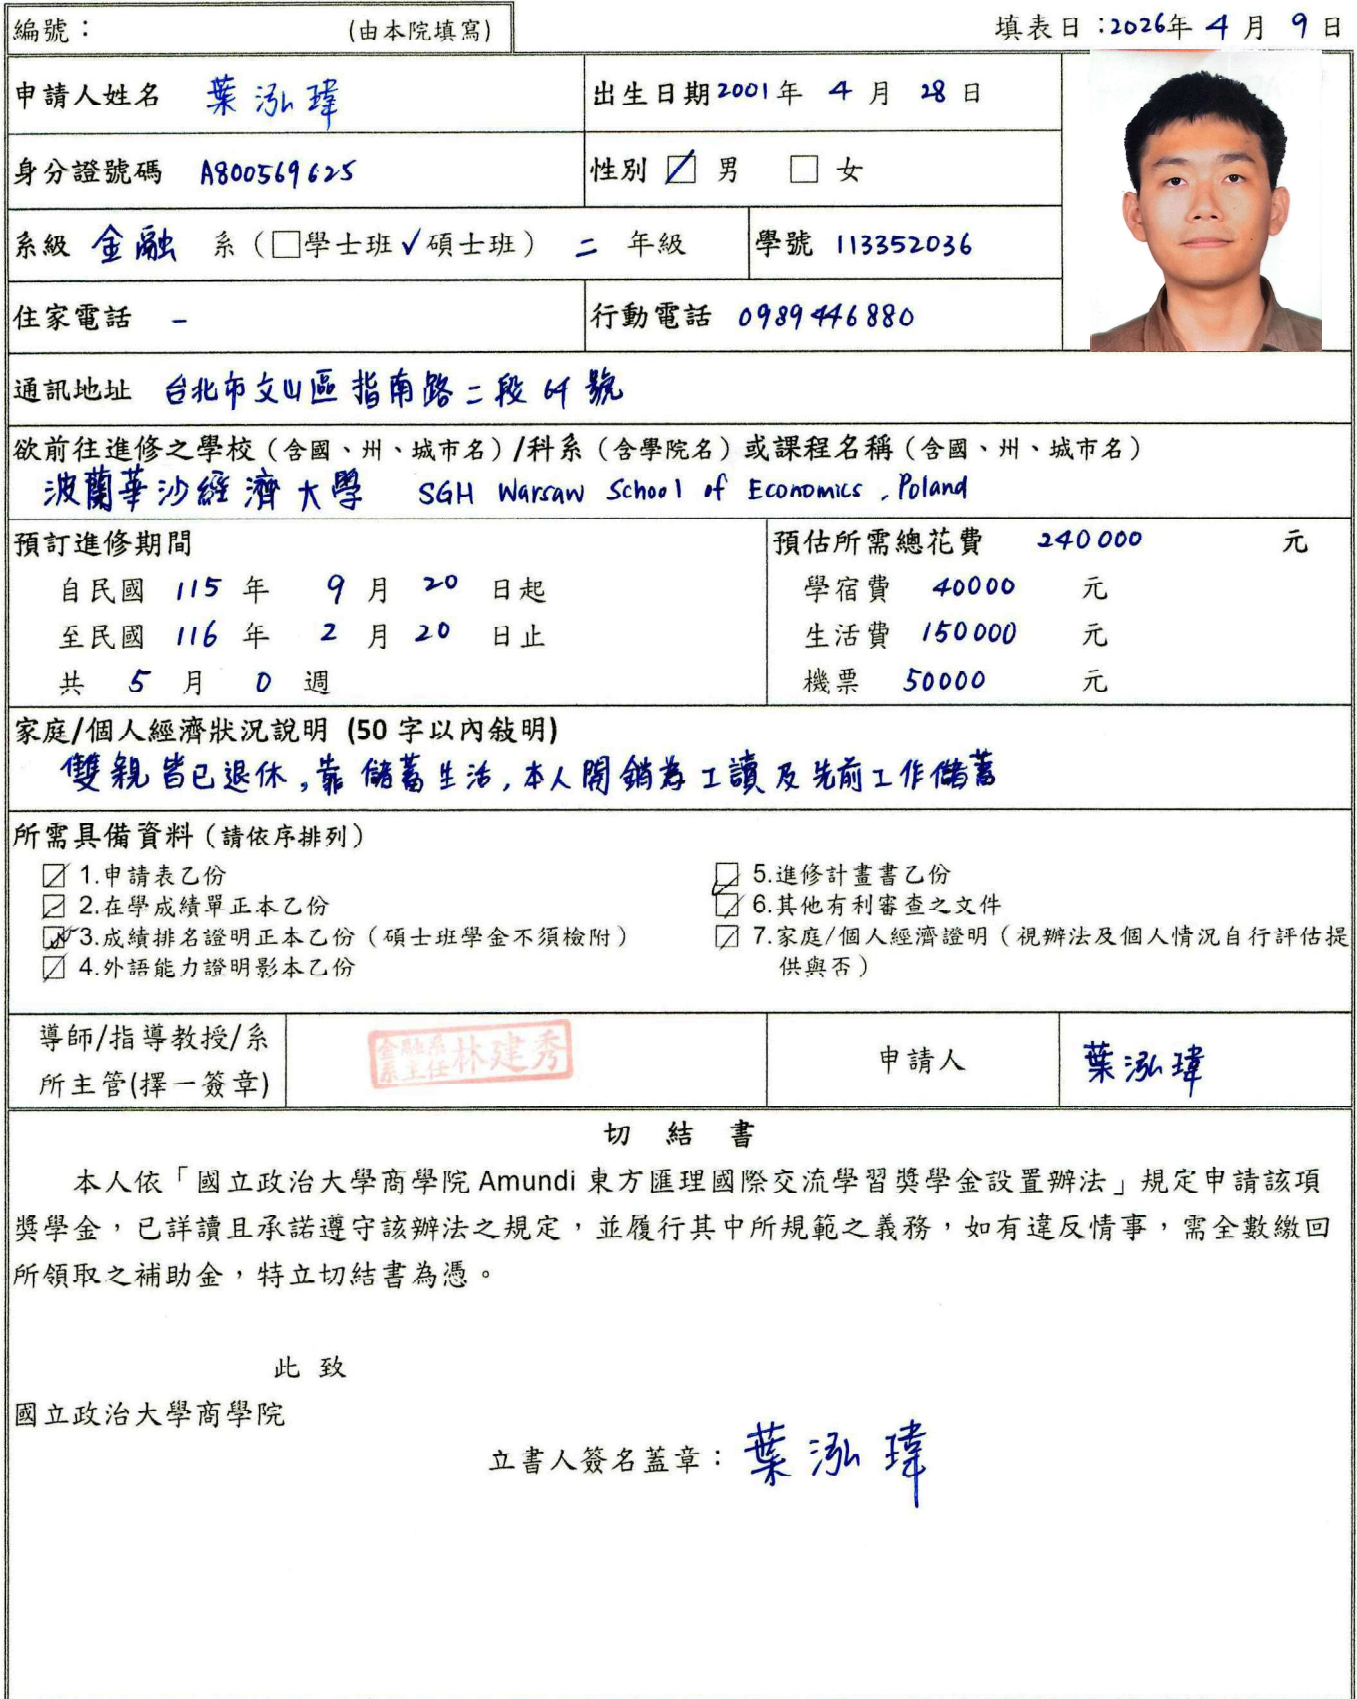 編號：　　　　(由本院填寫)　　　　填表日：2026年 4 月 9 日
申請人姓名 葉泓瑋　出生日期 2001 年 4 月 28 日
身分證號碼 A800569625　性別 ☑ 男 □ 女
系級 金融 系（□學士班 ✓碩士班）二 年級　學號 113352036
住家電話 –　行動電話 0989446880
通訊地址 台北市文山區指南路二段64號
欲前往進修之學校（含國、州、城市名）/科系（含學院名）或課程名稱（含國、州、城市名）
波蘭華沙經濟大學 SGH Warsaw School of Economics , Poland
預訂進修期間　預估所需總花費 240000 元
自民國 115 年 9 月 20 日起　學宿費 40000 元
至民國 116 年 2 月 20 日止　生活費 150000 元
共 5 月 0 週　機票 50000 元
家庭/個人經濟狀況說明 (50 字以內敍明)
雙親皆已退休，靠儲蓄生活，本人開銷為工讀及先前工作儲蓄
所需具備資料（請依序排列）
☑ 1.申請表乙份　☑ 5.進修計畫書乙份
☑ 2.在學成績單正本乙份　☑ 6.其他有利審查之文件
☑ 3.成績排名證明正本乙份（碩士班學金不須檢附）　☑ 7.家庭/個人經濟證明（視辦法及個人情況自行評估提
☑ 4.外語能力證明影本乙份　供與否）
導師/指導教授/系
所主管(擇一簽章)　金融系系主任林建秀　申請人　葉泓瑋
切 結 書
本人依「國立政治大學商學院 Amundi 東方匯理國際交流學習獎學金設置辦法」規定申請該項
獎學金，已詳讀且承諾遵守該辦法之規定，並履行其中所規範之義務，如有違反情事，需全數繳回
所領取之補助金，特立切結書為憑。
此 致
國立政治大學商學院
立書人簽名蓋章：葉泓瑋